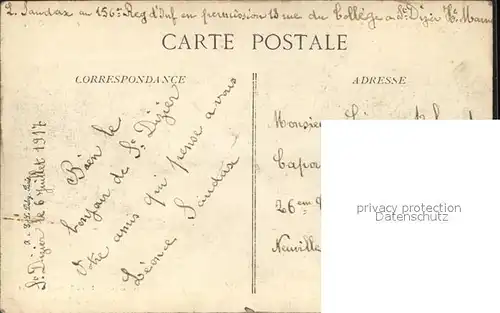 L. Saudax au 156e Reg d'Inf en permission 13 rue du Collège a St Dizier Hte Marne
CARTE POSTALE
CORRESPONDANCE
ADRESSE
St Dizier le 6 juillet 1917
Bien le
bonjour de St Dizier
Votre amis qui pense a vous
Léonce Saudax
Monsieur
Capo
26em
Neuville
privacy protection
Datenschutz